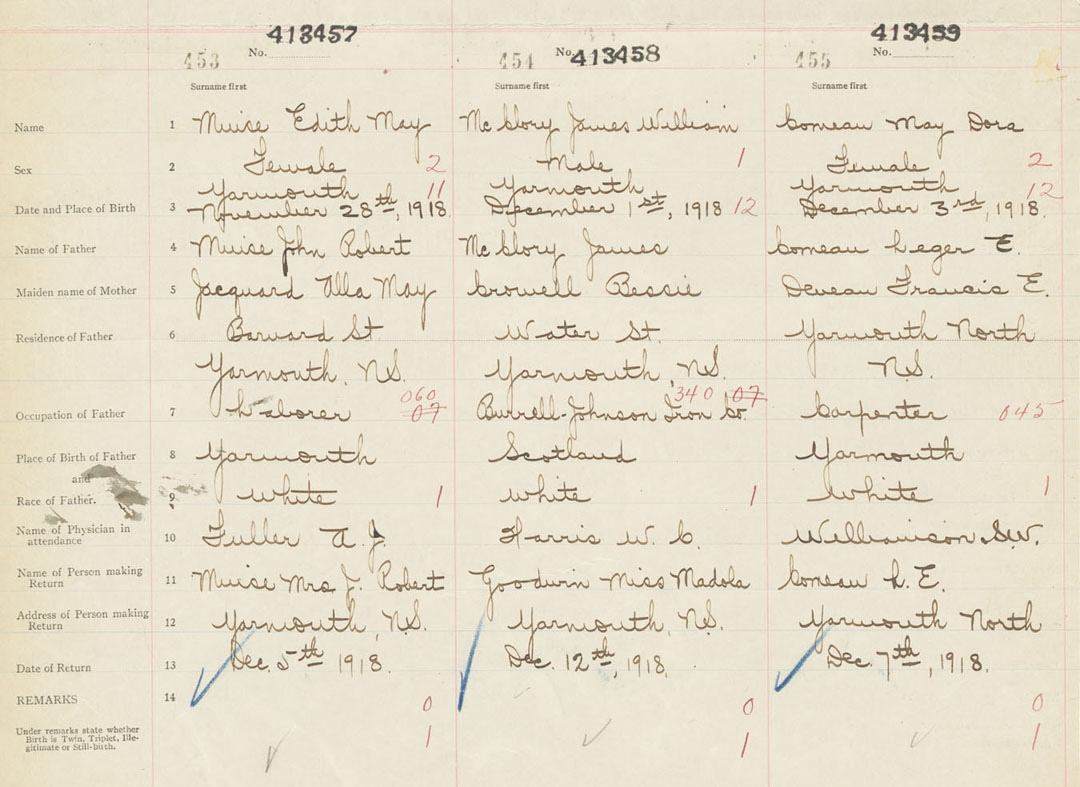 413457 413458 413459
453 No. 454 No. 455 No.
Surname first Surname first Surname first
Name 1 Muise Edith May Mc Glory James William Comeau May Dora
Sex 2 Female 2 Male 1 Female 2
Yarmouth 11 Yarmouth Yarmouth 12
Date and Place of Birth 3 November 28th, 1918 December 1st, 1918 12 December 3rd, 1918.
Name of Father 4 Muise John Robert Mc Glory James Comeau Leger E.
Maiden name of Mother 5 Jacquard Alla May Crowell Bessie Deveau Francis E.
Residence of Father 6 St. Water St. Yarmouth North
Yarmouth, N.S. Yarmouth, N.S. N.S.
060 340 07
Occupation of Father 7 Laborer 07 Burrell-Johnson Iron Co Carpenter 045
Place of Birth of Father 8 Yarmouth Scotland Yarmouth
and
Race of Father. 9 White 1 White 1 White 1
Name of Physician in
attendance 10 Fuller A. J. Harris W. C. Williamson S.W.
Name of Person making
Return 11 Muise Mrs J. Robert Goodwin Miss Madola Comeau L. E.
Address of Person making
Return 12 Yarmouth, N.S. Yarmouth, N.S. Yarmouth North
Date of Return 13 Dec. 5th 1918. Dec. 12th, 1918. Dec. 7th, 1918.
REMARKS 14 0 0 0
Under remarks state whether
Birth is Twin, Triplet, Ille-
gitimate or Still-birth. 1 1 1